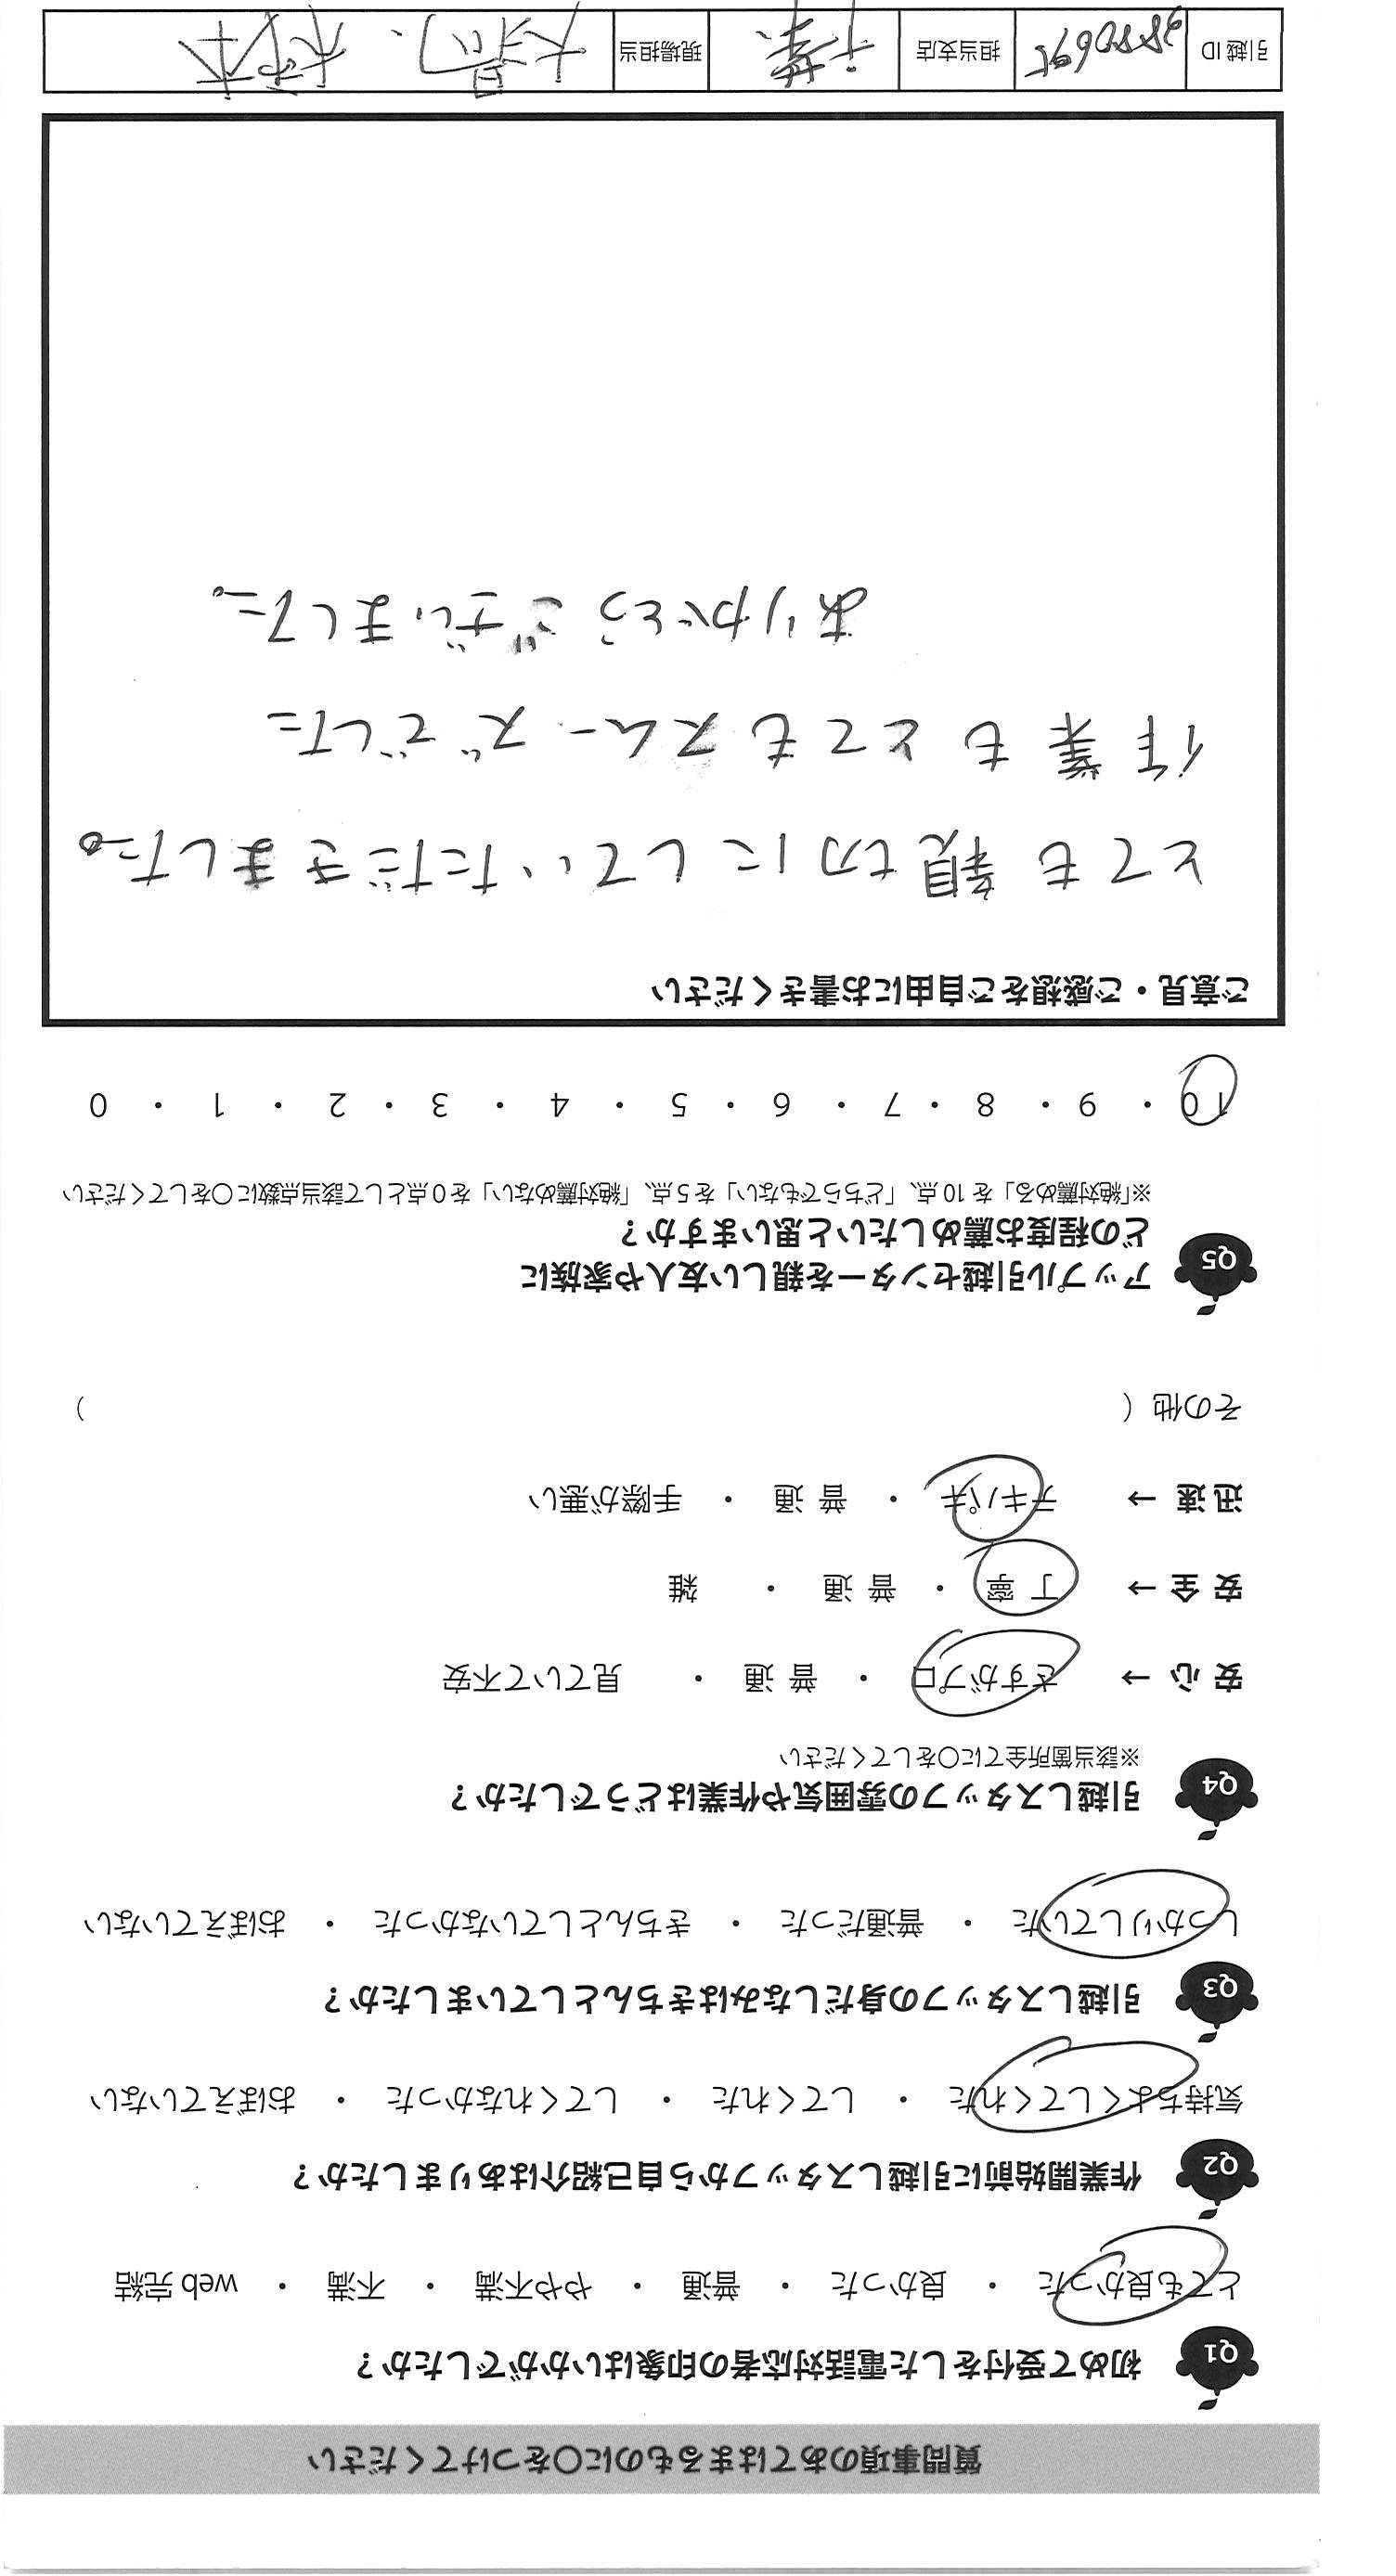 質問事項のあてはまるものに○をつけてください
Q1 初めて受付をした電話対応者の印象はいかがでしたか？
とても良かった ・ 良かった ・ 普通 ・ やや不満 ・ 不満 ・ web 完結
Q2 作業開始前に引越しスタッフから自己紹介はありましたか？
気持ちよくしてくれた ・ してくれた ・ してくれなかった ・ おぼえていない
Q3 引越しスタッフの身だしなみはきちんとしていましたか？
しっかりしていた ・ 普通だった ・ きちんとしていなかった ・ おぼえていない
Q4 引越しスタッフの雰囲気や作業はどうでしたか？
※該当箇所全てに○をしてください
安 心 → さすがプロ ・ 普 通 ・ 見ていて不安
安 全 → 丁 寧 ・ 普 通 ・ 雑
迅 速 → テキパキ ・ 普 通 ・ 手際が悪い
その他（ ）
Q5 アップル引越センターを親しい友人や家族に
どの程度お薦めしたいと思いますか？
※「絶対薦める」を 10 点、「どちらでもない」を 5 点、「絶対薦めない」を 0 点として該当点数に○をしてください
10 ・ 9 ・ 8 ・ 7 ・ 6 ・ 5 ・ 4 ・ 3 ・ 2 ・ 1 ・ 0
ご意見・ご感想をご自由にお書きください
とても親切にしていただきました。
作業もとてもスムーズでした
ありがとうございました。
引越 ID 担当支店 千葉 現場担当